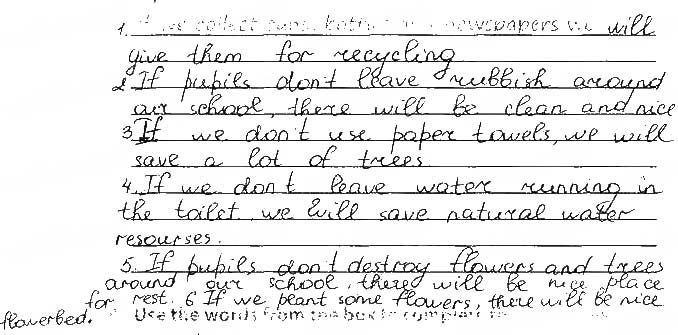 1. If we collect cans, bottles and newspapers we will
give them for recycling
2 If pupils don't leave rubbish around
our school, there will be clean and nice
3 If we don't use paper towels, we will
save a lot of trees
4. If we don t leave water running in
the toilet, we will save natural water
resourses.
5. If pupils don't destroy flowers and trees
around our school, there will be nice place
for rest. 6 If we peant some flowers, there will be nice
flowerbed. Use the words from the box to complete